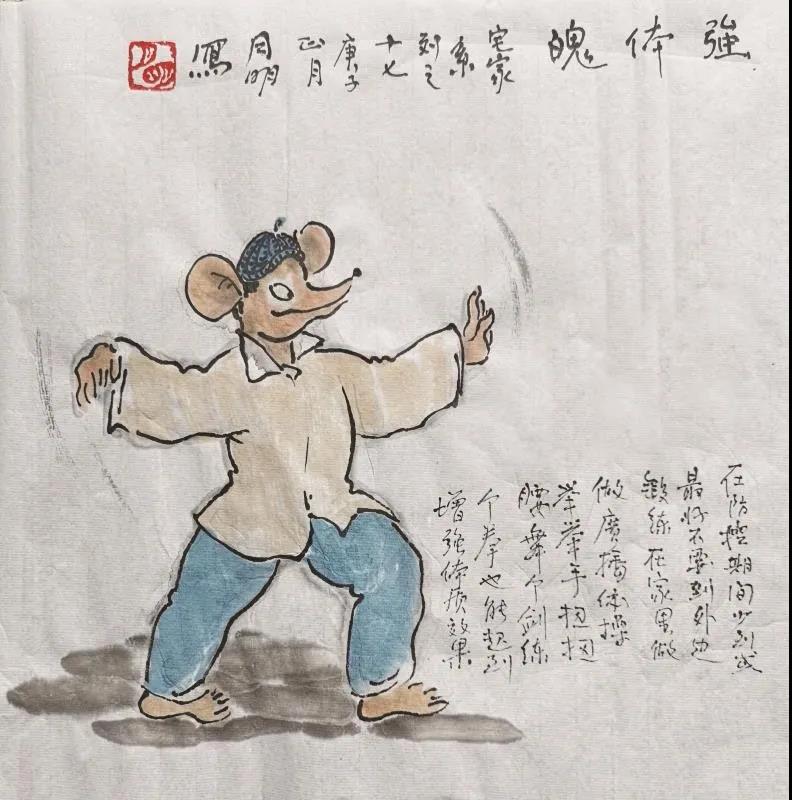 強体魄
宅家
系
列之
十七
庚子
正月
周明
寫
在防控期间少到或
最好不要到外边
锻练在家里做
做廣播体操
举举手扭扭
腰舞个剑练
个拳也能起到
增强体质效果